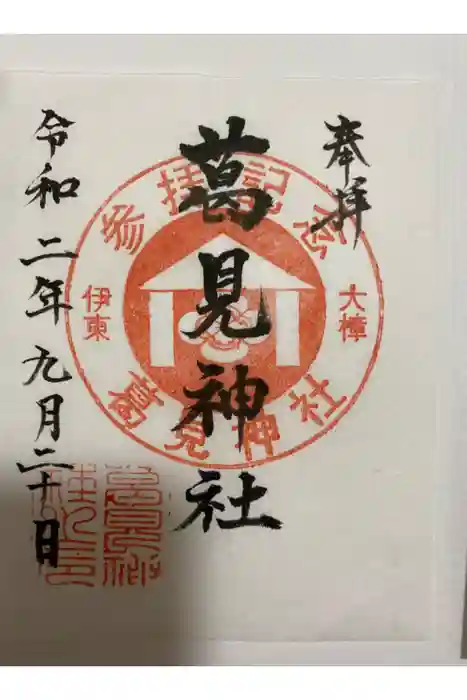 奉拝
葛見神社
令和二年九月二十日
参拝記念
大樟
伊東
葛見神社